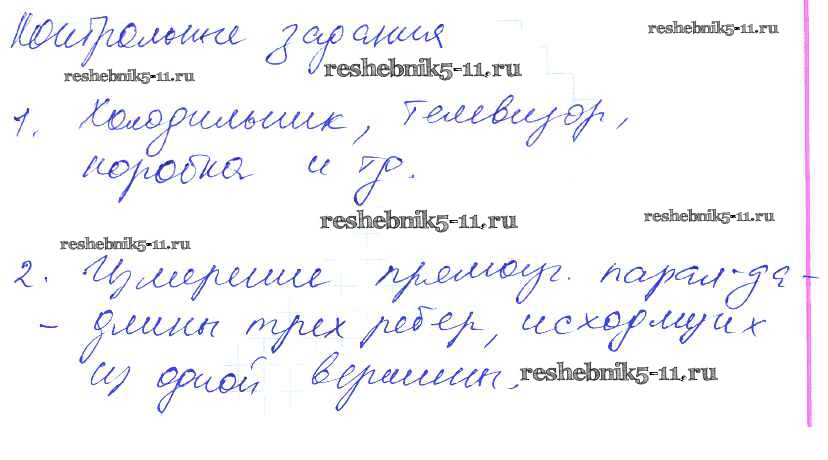 Контрольные задания
reshebnik5-11.ru
reshebnik5-11.ru
reshebnik5-11.ru
1. Холодильник, телевизор,
коробка и тд.
reshebnik5-11.ru
reshebnik5-11.ru
reshebnik5-11.ru
2. Измерение прямоуг. парал-да -
- длины трех ребер, исходящих
из одной вершины.
reshebnik5-11.ru